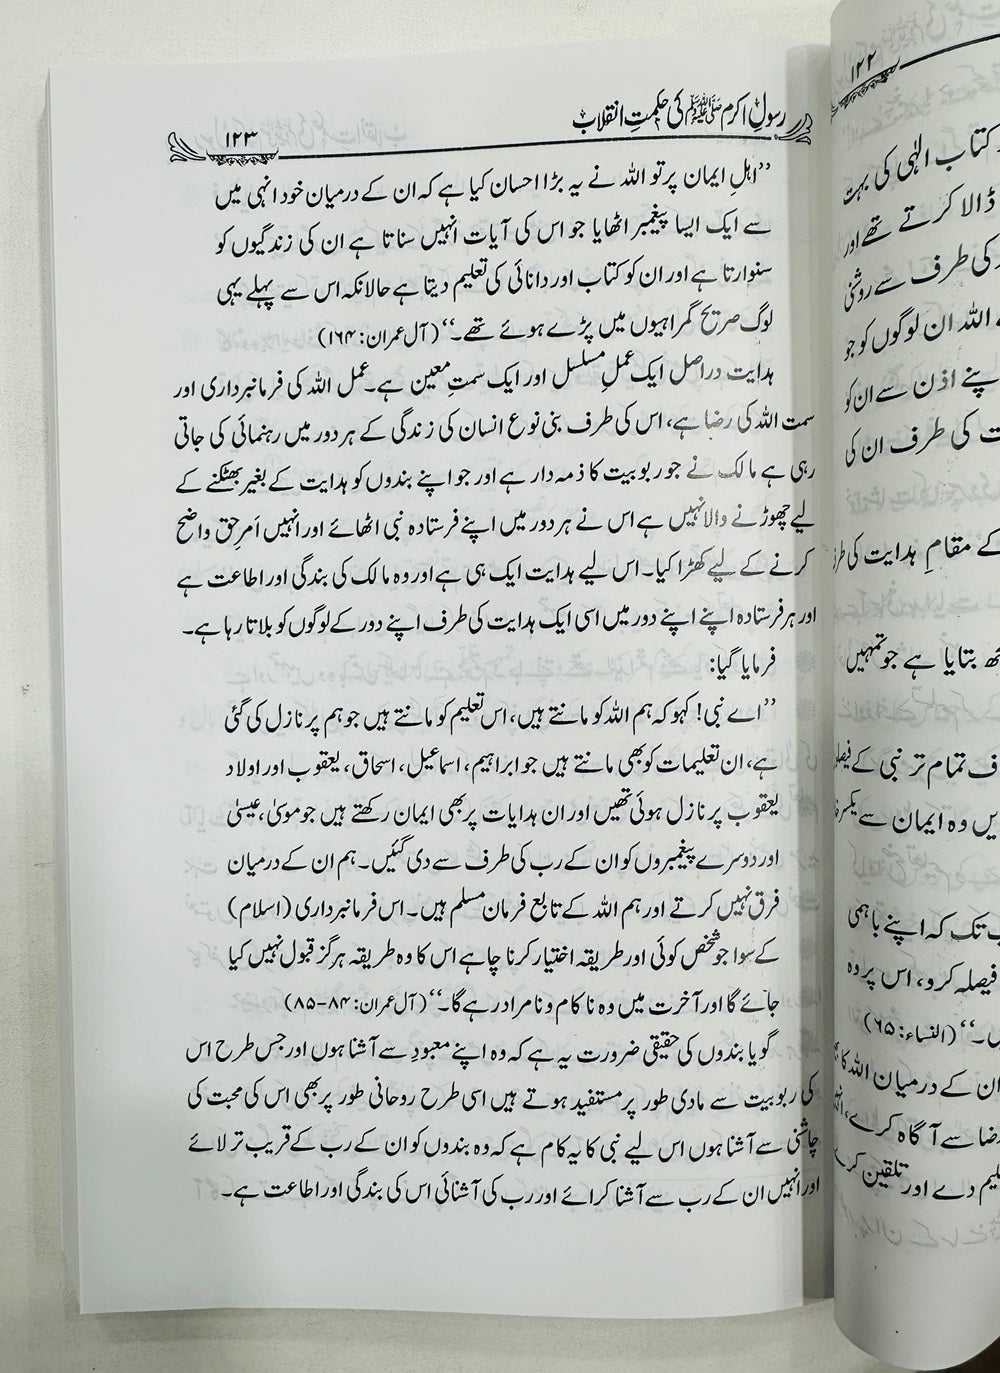 رسولِ اکرم ﷺ کی حکمتِ انقلاب
۱۲۳
’’اہلِ ایمان پر تو اللہ نے یہ بڑا احسان کیا ہے کہ ان کے درمیان خود انہی میں
سے ایک ایسا پیغمبر اٹھایا جو اس کی آیات انہیں سناتا ہے ان کی زندگیوں کو
سنوارتا ہے اور ان کو کتاب اور دانائی کی تعلیم دیتا ہے حالانکہ اس سے پہلے یہی
لوگ صریح گمراہیوں میں پڑے ہوئے تھے۔‘‘ (آل عمران: ۱۶۴)
ہدایت دراصل ایک عملِ مسلسل اور ایک سمتِ معین ہے۔ عمل اللہ کی فرمانبرداری اور
سمت اللہ کی رضا ہے، اس کی طرف بنی نوع انسان کی زندگی کے ہر دور میں رہنمائی کی جاتی
رہی ہے مالک نے جو ربوبیت کا ذمہ دار ہے اور جو اپنے بندوں کو ہدایت کے بغیر بھٹکنے کے
لیے چھوڑنے والا نہیں ہے اس نے ہر دور میں اپنے فرستادہ نبی اٹھائے اور انہیں اَمرِ حق واضح
کرنے کے لیے کھڑا کیا۔ اس لیے ہدایت ایک ہی ہے اور وہ مالک کی بندگی اور اطاعت ہے
اور ہر فرستادہ اپنے اپنے دور میں اسی ایک ہدایت کی طرف اپنے دور کے لوگوں کو بلاتا رہا ہے۔
فرمایا گیا:
’’اے نبی! کہو کہ ہم اللہ کو مانتے ہیں، اس تعلیم کو مانتے ہیں جو ہم پر نازل کی گئی
ہے، ان تعلیمات کو بھی مانتے ہیں جو ابراہیم، اسماعیل، اسحاق، یعقوب اور اولاد
یعقوب پر نازل ہوئی تھیں اور ان ہدایات پر بھی ایمان رکھتے ہیں جو موسیٰ، عیسیٰ
اور دوسرے پیغمبروں کو ان کے رب کی طرف سے دی گئیں۔ ہم ان کے درمیان
فرق نہیں کرتے اور ہم اللہ کے تابع فرمان مسلم ہیں۔ اس فرمانبرداری (اسلام)
کے سوا جو شخص کوئی اور طریقہ اختیار کرنا چاہے اس کا وہ طریقہ ہرگز قبول نہیں کیا
جائے گا اور آخرت میں وہ ناکام و نامراد رہے گا۔‘‘ (آل عمران: ۸۴–۸۵)
گویا بندوں کی حقیقی ضرورت یہ ہے کہ وہ اپنے معبود سے آشنا ہوں اور جس طرح اس
کی ربوبیت سے مادی طور پر مستفید ہوتے ہیں اسی طرح روحانی طور پر بھی اس کی محبت کی
چاشنی سے آشنا ہوں اس لیے نبی کا یہ کام ہے کہ وہ بندوں کو ان کے رب کے قریب تر لائے
اور انہیں ان کے رب سے آشنا کرائے اور رب کی آشنائی اس کی بندگی اور اطاعت ہے۔
۱۲۲
کتاب الٰہی کی بہت
ڈالا کرتے تھے اور
کی طرف سے روشنی
اللہ ان لوگوں کو جو
پنے اذن سے ان کو
ت کی طرف ان کی
کے مقامِ ہدایت کی
بتایا ہے جو تمہیں
ف تمام تر نبی کے
یں وہ ایمان سے یکسر
تک کہ اپنے باہمی
فیصلہ کرو، اس پر وہ
‘‘ (النساء: ۶۵)
ان کے درمیان اللہ کا
رضا سے آگاہ کرے،
لیم دے اور تلقین